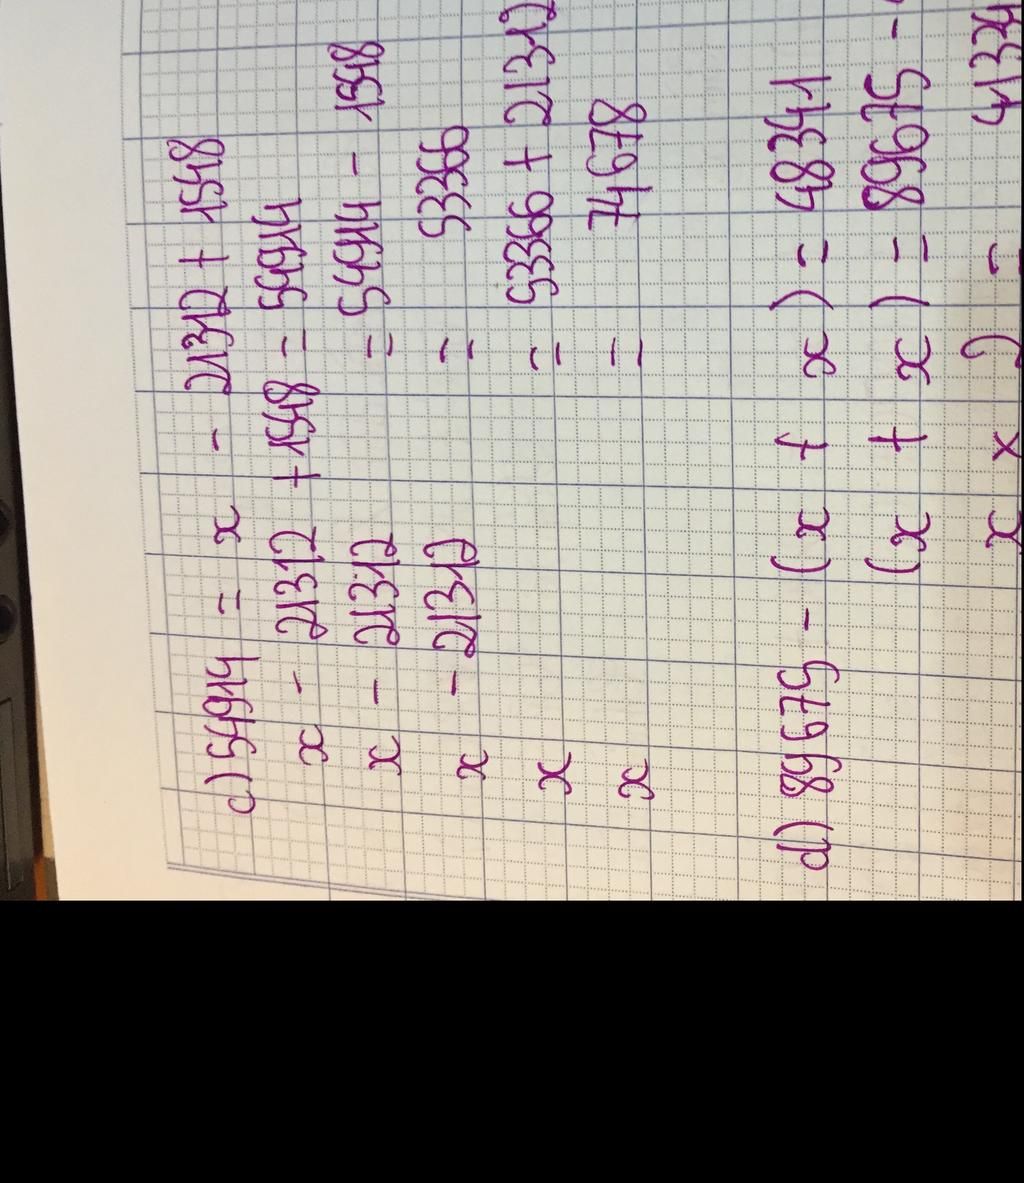 c) 54914 = x - 21312 + 1548
x - 21312 + 1548 = 54914
x - 21312 = 54914 - 1548
x - 21312 = 53366
x = 53366 + 21312
x = 74678
d) 89675 - (x + x) = 48341
(x + x) = 89675 -
x x 2 = 4133